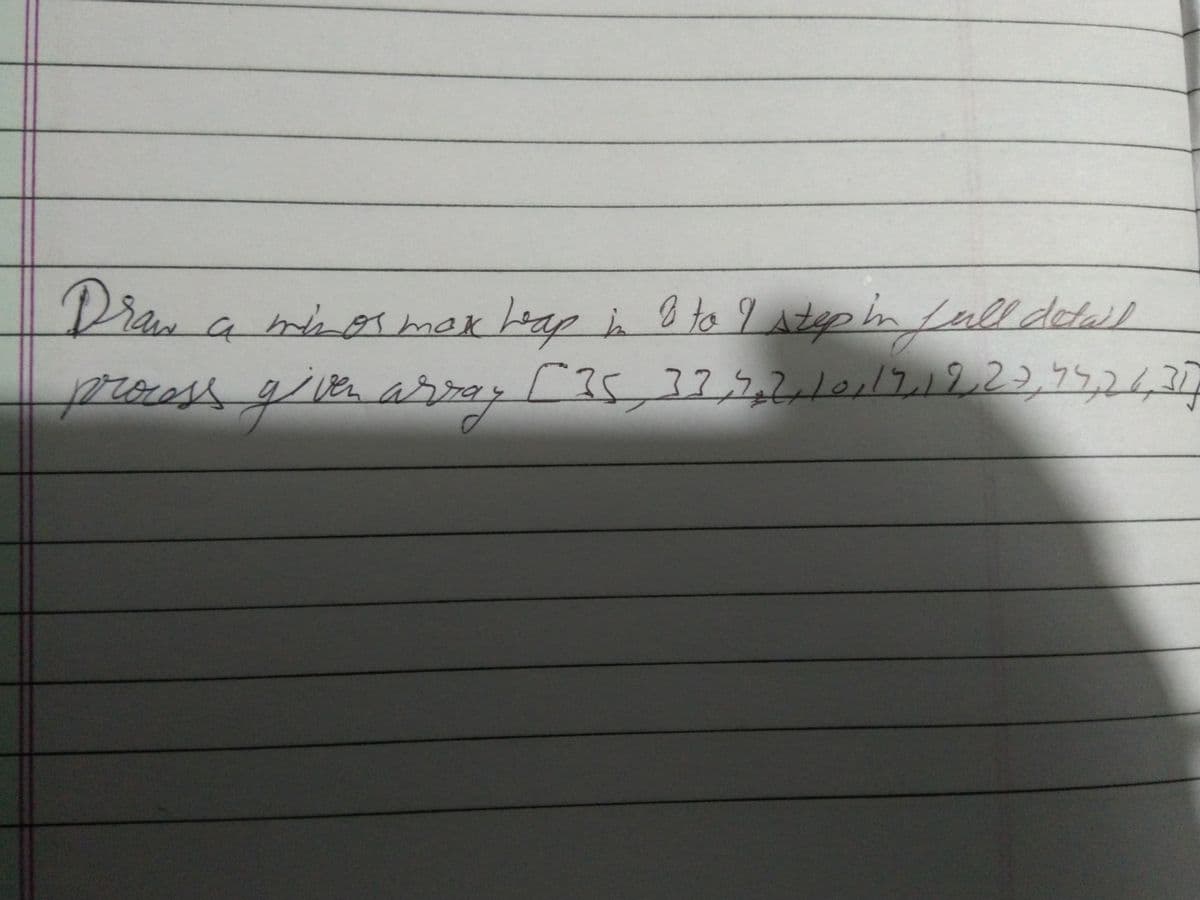 Draw a min or max heap in 8 to 9 step in full detail
process given array [35, 33, 42, 10, 14, 19, 27, 44, 26, 31]